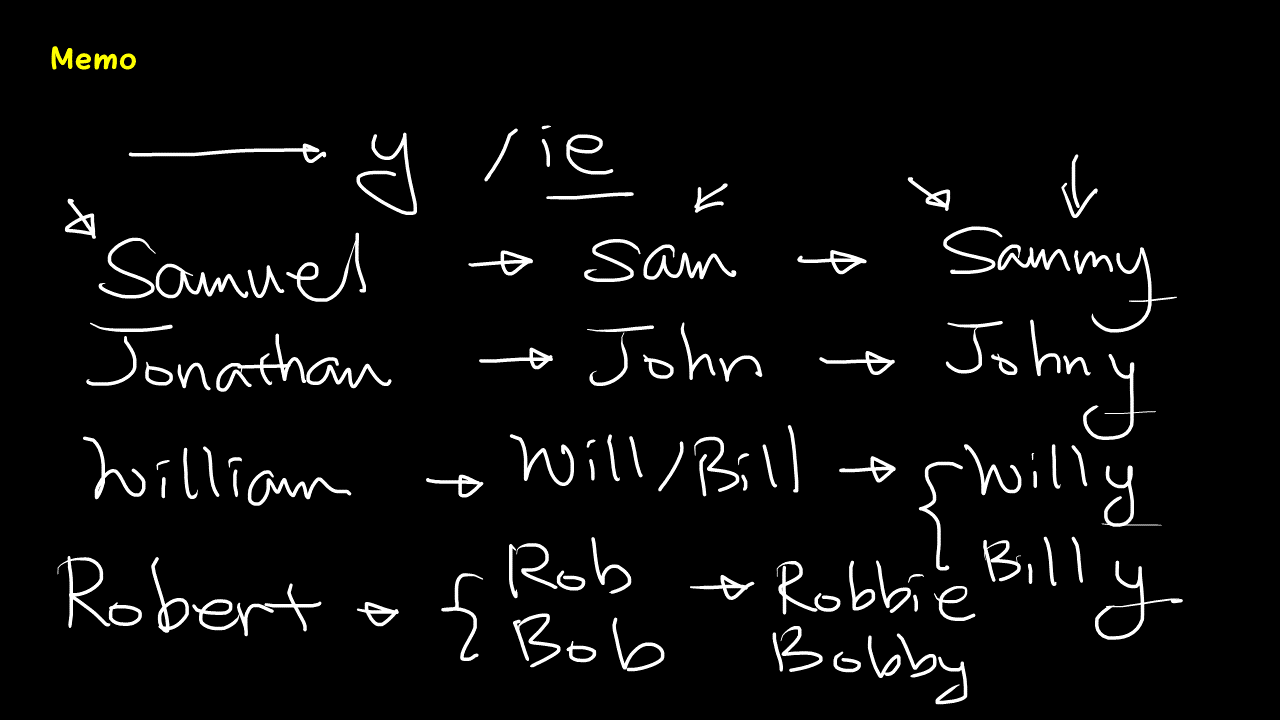 Memo
→ y / ie
Samuel → Sam → Sammy
Jonathan → John → Johny
William → Will/Bill → { Willy
Billy
Robert → { Rob → Robbie
Bob Bobby